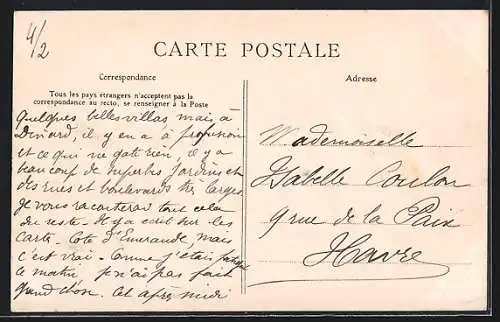 4/2
CARTE POSTALE
Correspondance
Adresse
Tous les pays étrangers n'acceptent pas la
correspondance au recto, se renseigner à la Poste
Quelques belles villas mais, à
Dinard, il y en a à profusion
et ce qui ne gate rien, il y a
beaucoup de superbes jardins et
des rues et boulevards très larges
Je vous raconterai tout cela
du reste. Il y a écrit sur les
Carte - Cote d'Emeraude, mais
c'est vrai - Comme j'étais
le matin, je n'ai pas fait
grand chose. Cet après midi
Mademoiselle
Isabelle Coulon
9 rue de la Paix
Havre